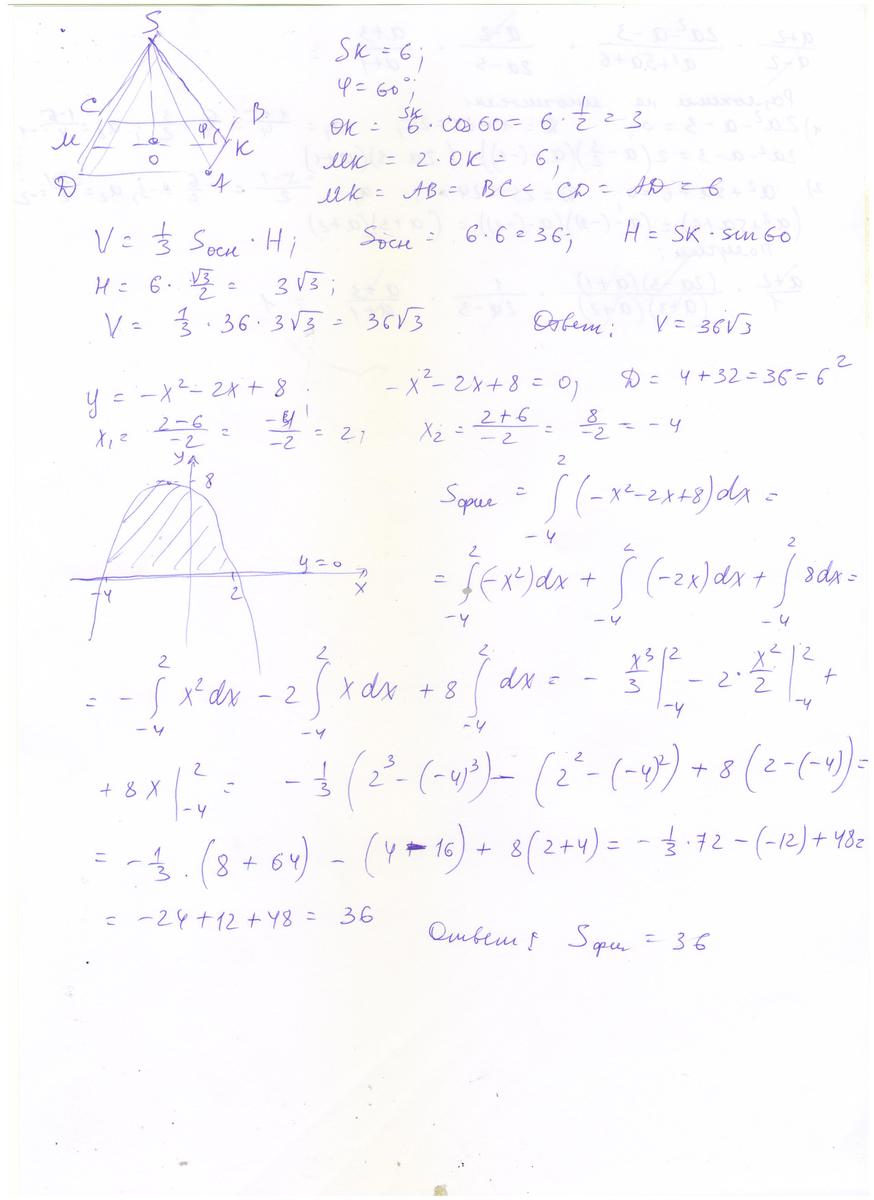 S
C B
M φ K
O
D A
SK = 6;
φ = 60°;
OK = SK 6 · cos 60 = 6 · 1/2 = 3
MK = 2 · OK = 6;
MK = AB = BC = CD = AD = 6
V = 1/3 Sосн · H; Sосн = 6 · 6 = 36; H = SK · sin 60
H = 6 · √3/2 = 3√3;
V = 1/3 · 36 · 3√3 = 36√3 Ответ: V = 36√3
y = -x² - 2x + 8 -x² - 2x + 8 = 0, D = 4 + 32 = 36 = 6²
x₁ = (2-6)/-2 = -4/-2 = 2, x₂ = (2+6)/-2 = 8/-2 = -4
y 8
y = 0
-4 2 x
Sфиг = ∫₋₄² (-x² - 2x + 8) dx =
= ∫₋₄² (-x²) dx + ∫₋₄² (-2x) dx + ∫₋₄² 8 dx =
= - ∫₋₄² x² dx - 2 ∫₋₄² x dx + 8 ∫₋₄² dx = - x³/3 |₋₄² - 2 · x²/2 |₋₄² +
+ 8x |₋₄² = - 1/3 (2³ - (-4)³) - (2² - (-4)²) + 8 (2 - (-4)) =
= - 1/3 · (8 + 64) - (4 - 16) + 8 (2 + 4) = - 1/3 · 72 - (-12) + 48 =
= -24 + 12 + 48 = 36
Ответ: Sфиг = 36